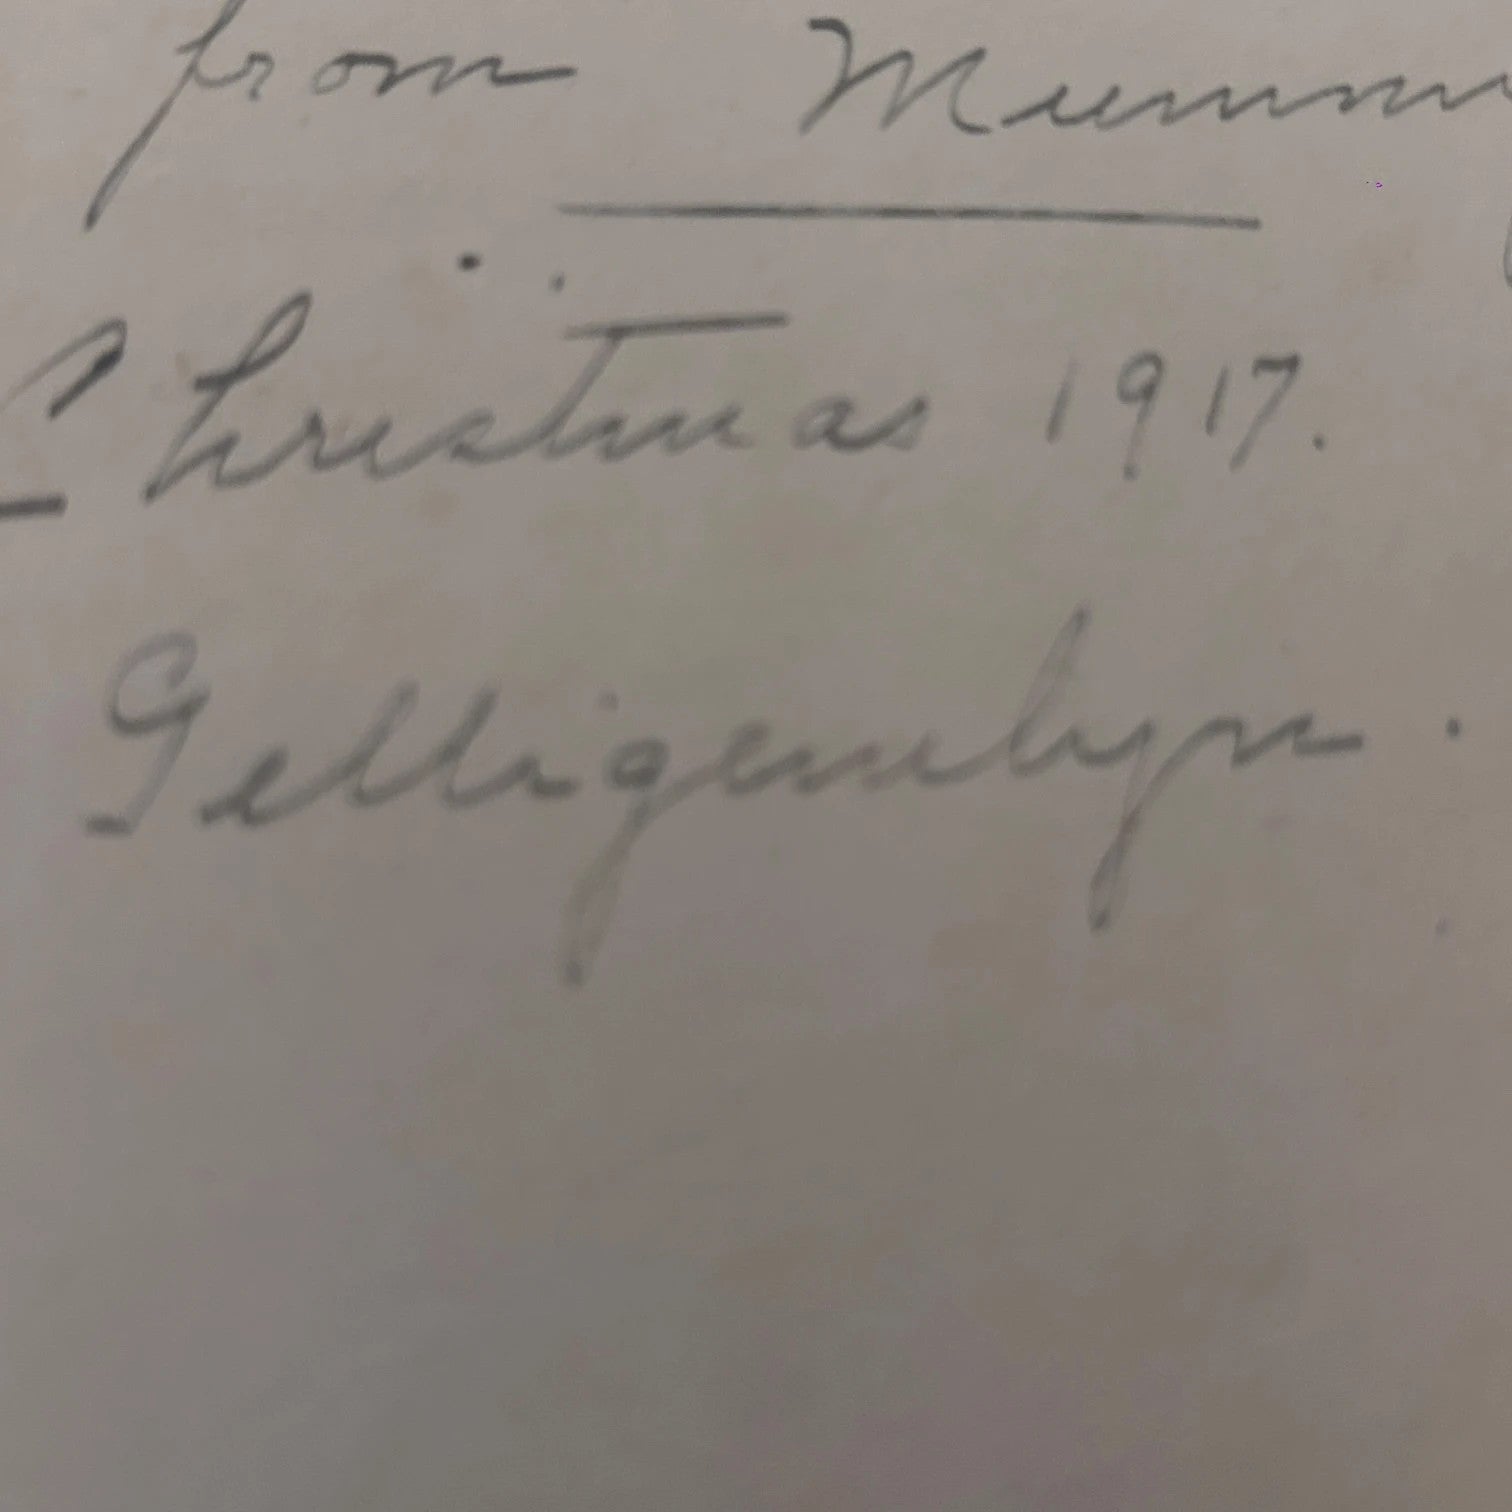 from Mumm
Christmas 1917.
Gelligemlyn.